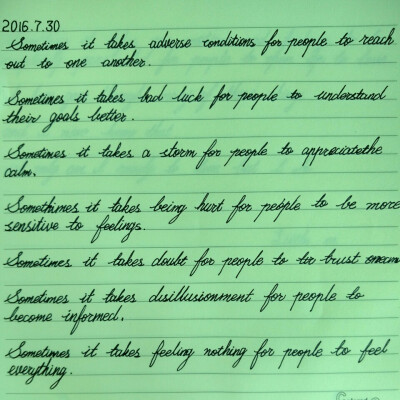 2016.7.30
Sometimes it takes adverse conditions for people to reach
out to one another.
Sometimes it takes bad luck for people to understand
their goals better.
Sometimes it takes a storm for people to appreciatethe
calm.
Somethimes it takes being hurt for people to be more
sensitive to feelings.
Sometimes it takes doubt for people to trust
Sometimes it takes disillusionment for people to
become informed.
Sometimes it takes feeling nothing for people to feel
everything.